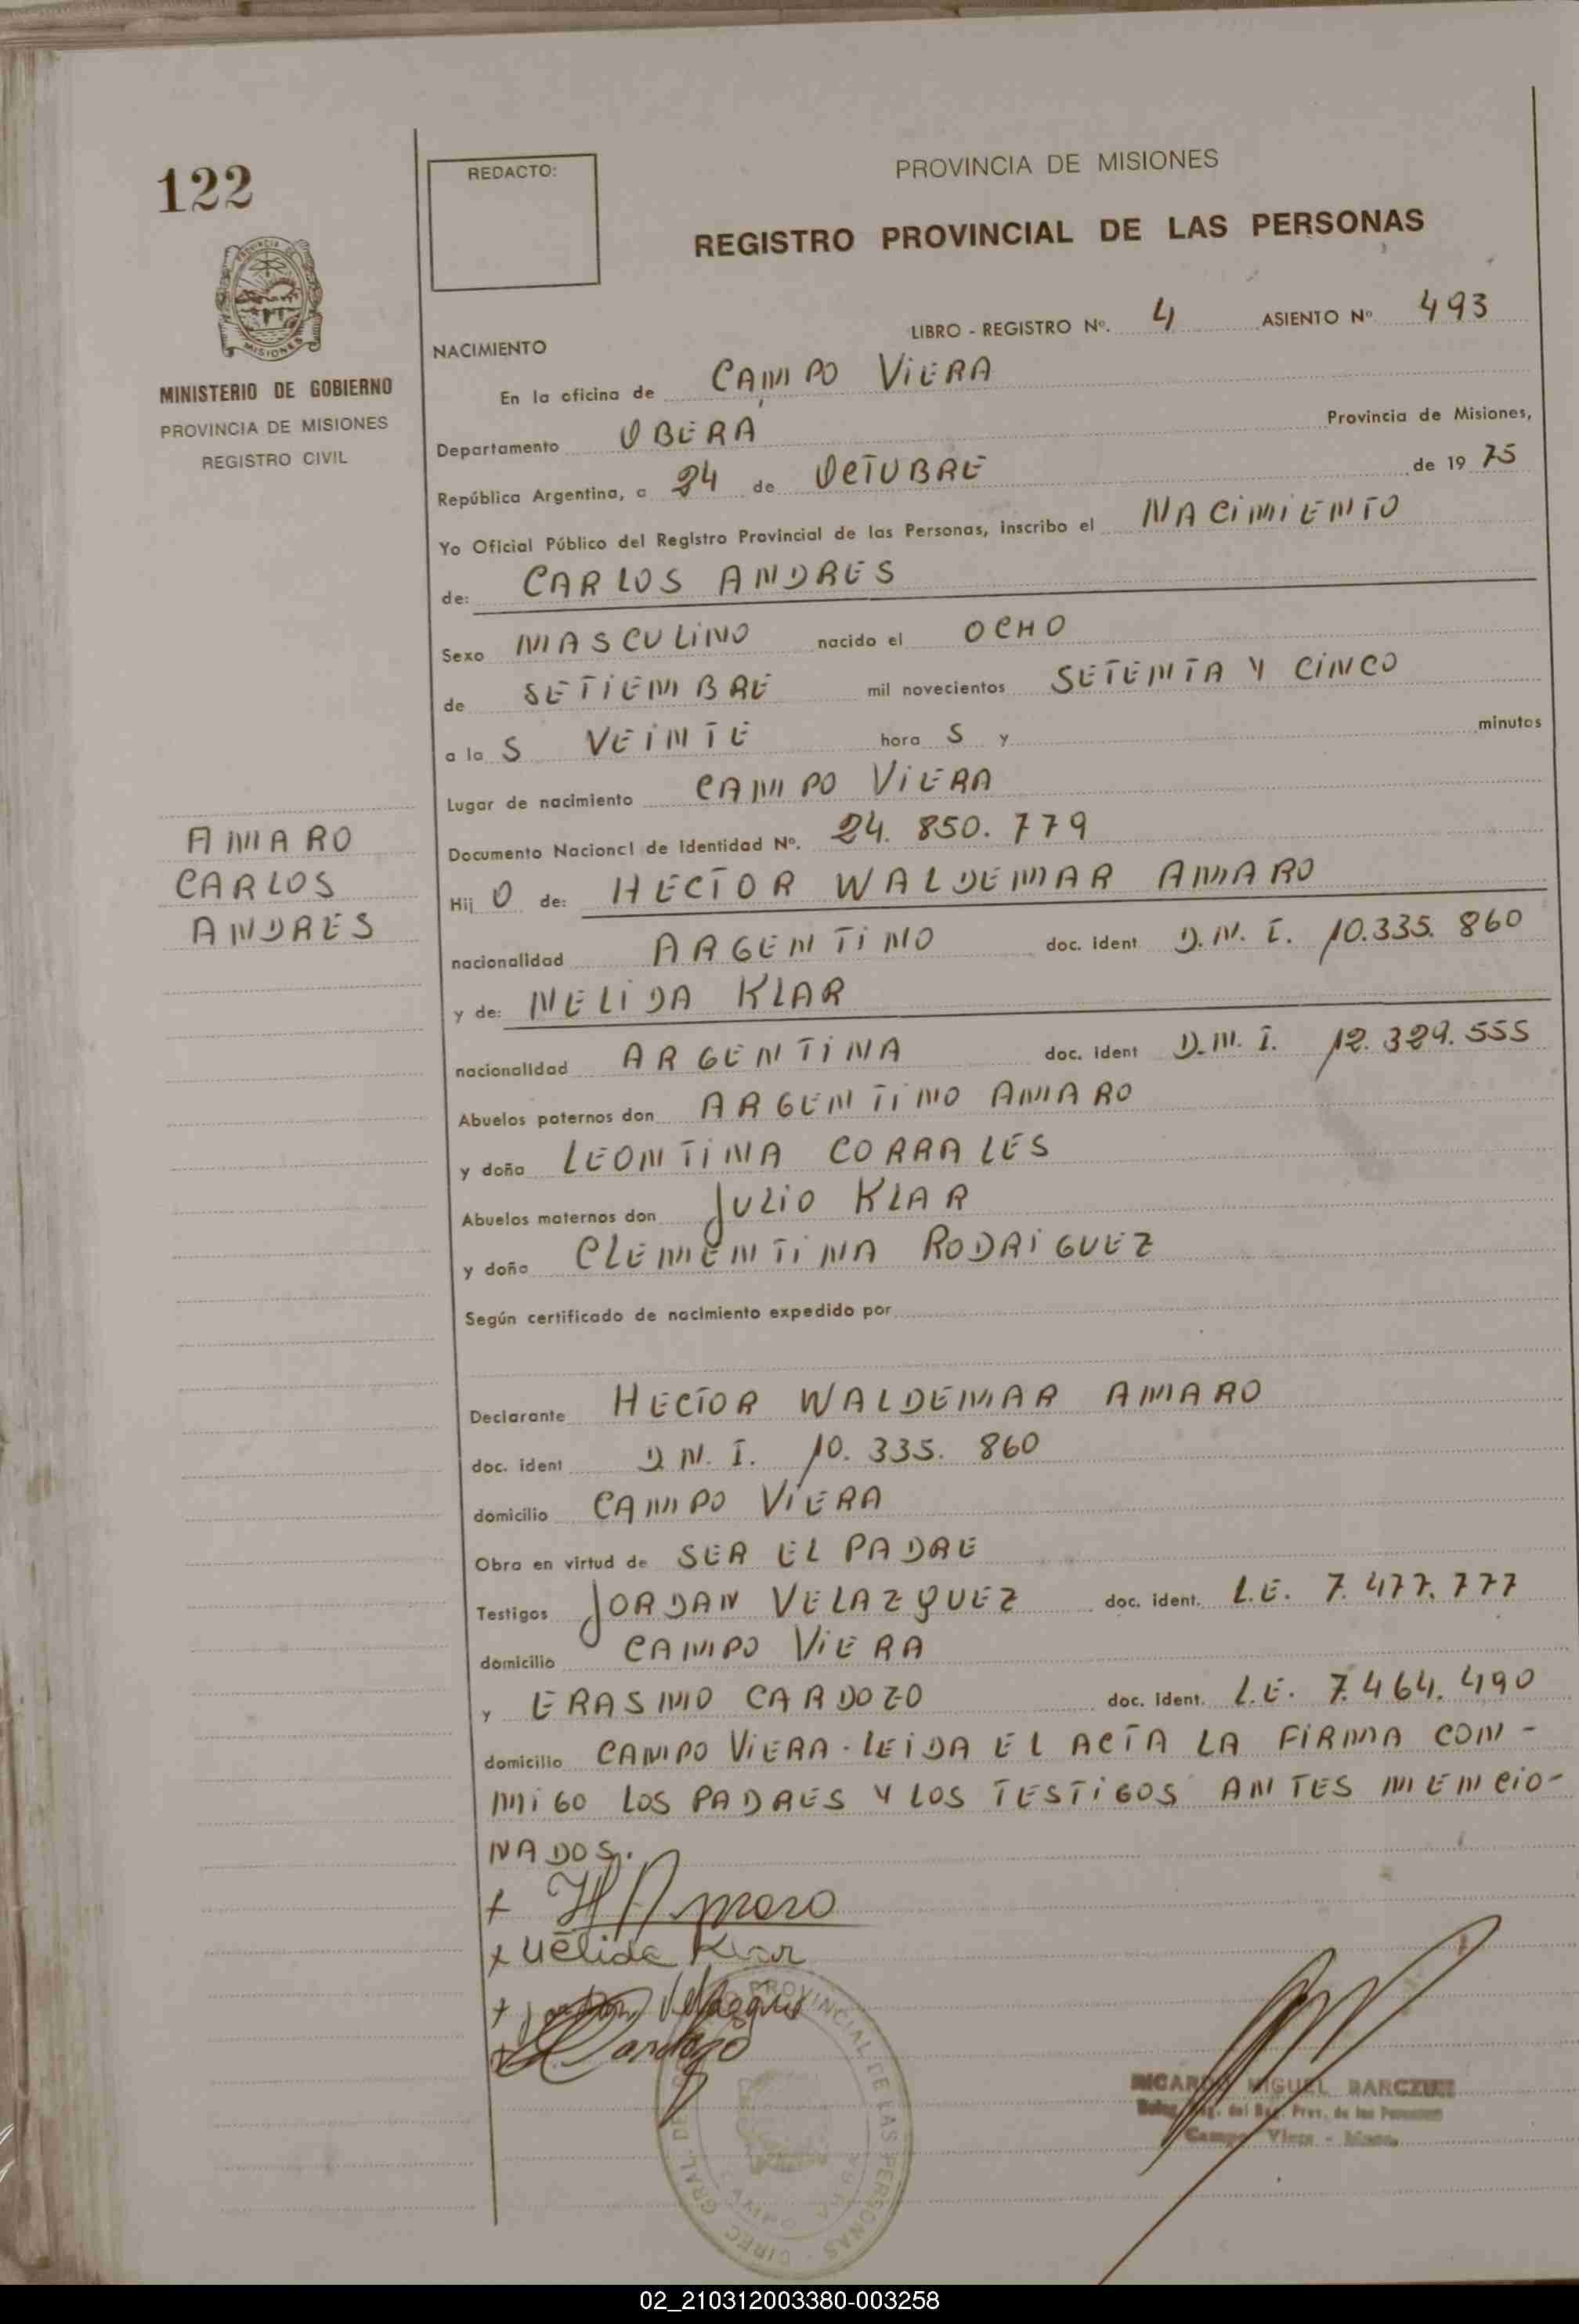 122
REDACTO:
PROVINCIA DE MISIONES
REGISTRO PROVINCIAL DE LAS PERSONAS
PROVINCIA DE
MISIONES
MINISTERIO DE GOBIERNO
PROVINCIA DE MISIONES
REGISTRO CIVIL
LIBRO - REGISTRO Nº. 4 ASIENTO Nº 493
NACIMIENTO
En la oficina de CAMPO VIERA
Departamento OBERÁ Provincia de Misiones,
República Argentina, a 24 de OCTUBRE de 1975
Yo Oficial Público del Registro Provincial de las Personas, inscribo el NACIMIENTO
de: CARLOS ANDRES
Sexo MASCULINO nacido el OCHO
de SETIEMBRE mil novecientos SETENTA Y CINCO
a la S VEINTE hora S y minutos
Lugar de nacimiento CAMPO VIERA
Documento Nacional de Identidad Nº. 24.850.779
AMARO
CARLOS
ANDRES
Hij O de: HECTOR WALDEMAR AMARO
nacionalidad ARGENTINO doc. ident D.N.I. 10.335.860
y de: NELIDA KLAR
nacionalidad ARGENTINA doc. ident D.N.I. 12.329.555
Abuelos paternos don ARGENTINO AMARO
y doña LEONTINA CORRALES
Abuelos maternos don JULIO KLAR
y doña CLEMENTINA RODRIGUEZ
Según certificado de nacimiento expedido por
Declarante HECTOR WALDEMAR AMARO
doc. ident D.N.I. 10.335.860
domicilio CAMPO VIERA
Obra en virtud de SER EL PADRE
Testigos JORDAN VELAZQUEZ doc. ident. L.E. 7.477.777
domicilio CAMPO VIERA
y ERASMO CARDOZO doc. ident. L.E. 7.464.490
domicilio CAMPO VIERA - LEIDA EL ACTA LA FIRMA CON-
MIGO LOS PADRES Y LOS TESTIGOS ANTES MENCIO-
NADOS.
+ H Amaro
x Nélida Klar
+ Jordan Velazquez
Cardozo
PROVINCIAL DE LAS PERSONAS - DIREC. GRAL. DE
CAMPO VIERA
RICARDO MIGUEL BARCZUK
Campo Viera - Mnes.
02_210312003380-003258